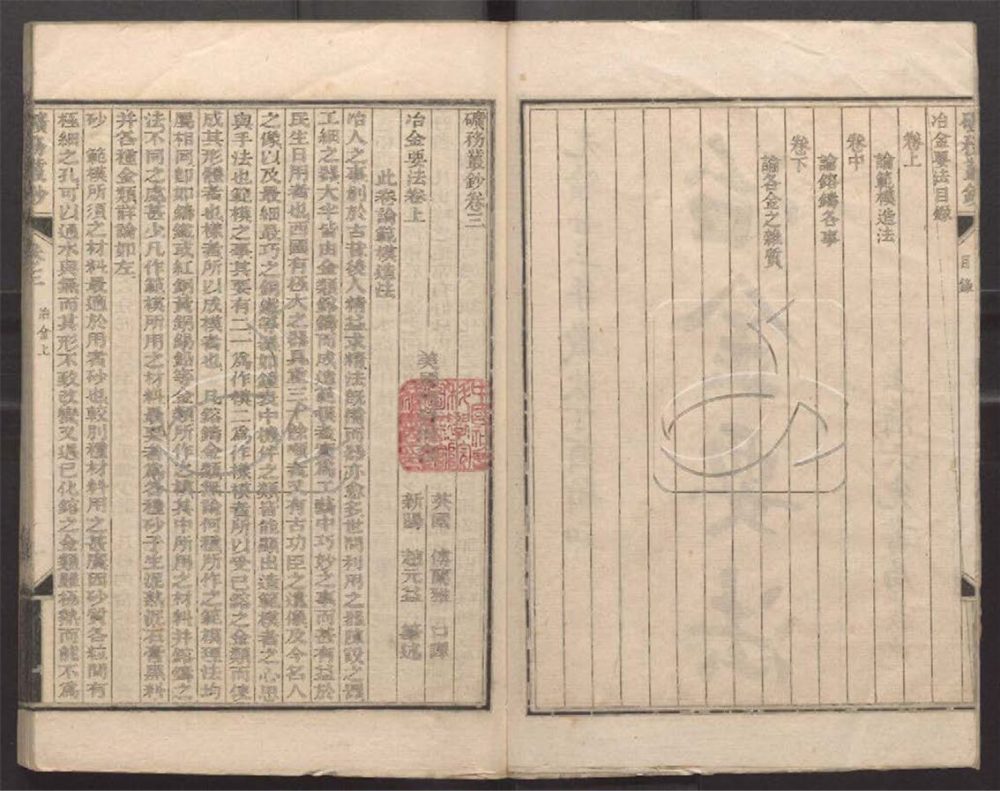 冶金要法目錄
卷上
論範模造法
卷中
論鎔鑄各事
卷下
論各金之雜質
目錄
礦務叢鈔卷三
冶金要法卷上
英國
英國 傅蘭雅 口譯
新陽 趙元益 筆述
此卷論範模造法
冶人之事創於古昔後人精益求精法旣備而器亦愈多世間利用之器陳設之器
工細之器大半皆由金類鎔鑄而成造範模者實爲工藝中巧妙之事而甚有益於
民生日用者也西國有極大之器具重三十餘噸者又有古功臣之遺像及今名人
之像以及最細最巧之銅器等
類皆能顯出造範模者之心思
與手法也範模之事其要有二一爲作模二爲作樣模者所以受已鎔之金類而使
成其形體者也樣者所以成模者也 凡鎔鑄金類無論何種所作之範模理法均
屬相同卽如鑄鐵或紅銅黃銅錫鉛等金類所作之模其中所用之材料幷鎔鑄之
法不同之處甚少凡作範模所用之材料最要者爲各種砂子生泥熟泥石膏黑料
幷各種金類詳論如左
砂 範模所須之材料最適於用者砂也較別種材料用之甚廣因砂質各粒間有
極細之孔可以通水與氣而其形不致改變又遇已化鎔之金類雖極熱而能不爲
礦務叢鈔
冶金上